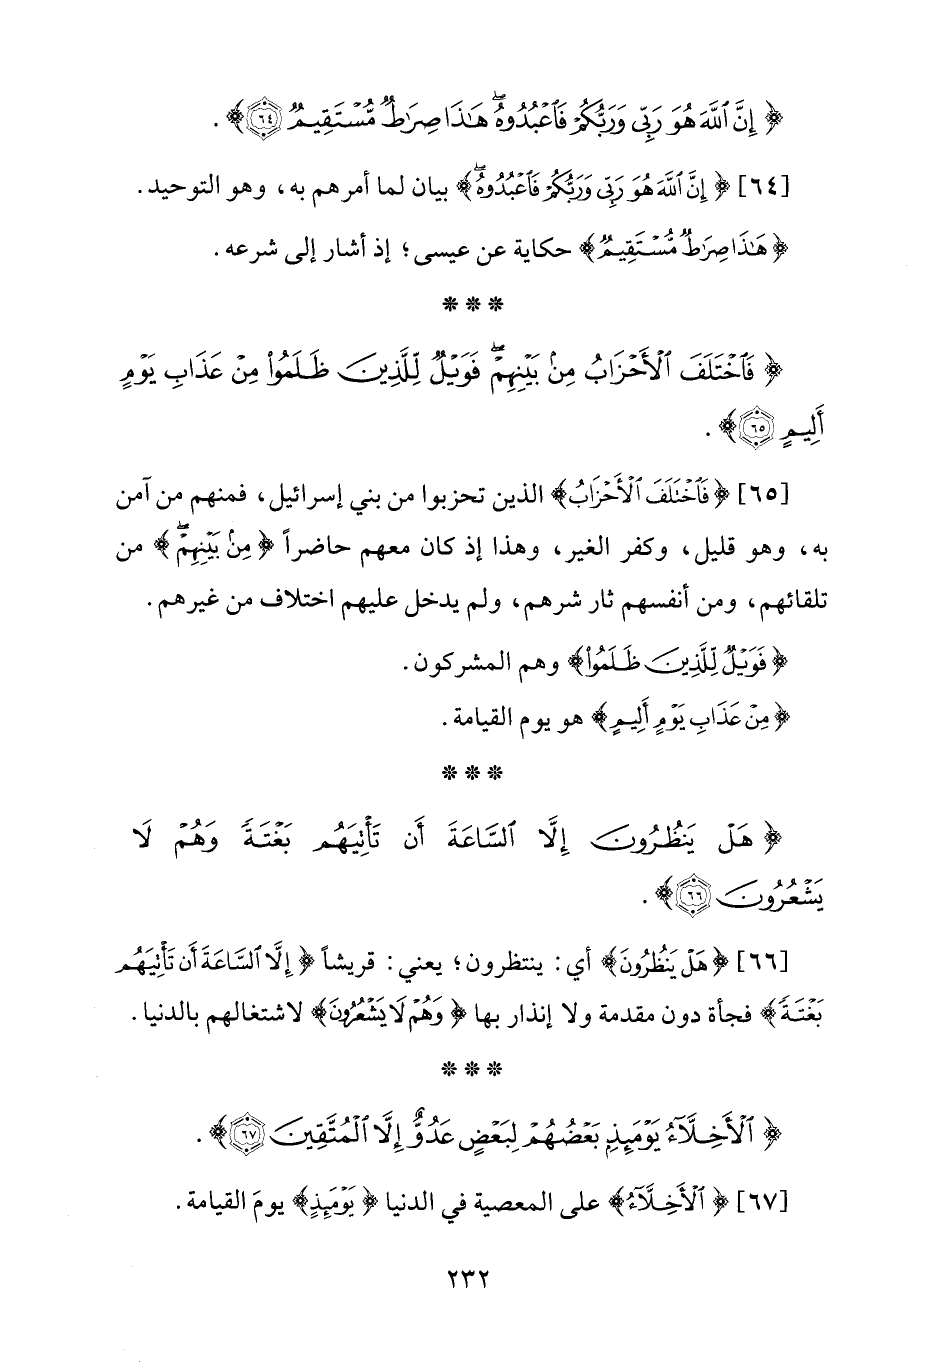 ﴿ إِنَّ ٱللَّهَ هُوَ رَبِّى وَرَبُّكُمْ فَٱعْبُدُوهُ ۚ هَـٰذَا صِرَٰطٌ مُّسْتَقِيمٌ ﴿٦٤﴾ ﴾ .
[٦٤] ﴿ إِنَّ ٱللَّهَ هُوَ رَبِّى وَرَبُّكُمْ فَٱعْبُدُوهُ ۚ ﴾ بيان لما أمرهم به، وهو التوحيد.
﴿ هَـٰذَا صِرَٰطٌ مُّسْتَقِيمٌ ﴾ حكاية عن عيسى؛ إذ أشار إلى شرعه.
* * *
﴿ فَٱخْتَلَفَ ٱلْأَحْزَابُ مِنۢ بَيْنِهِمْ ۖ فَوَيْلٌ لِّلَّذِينَ ظَلَمُوا۟ مِنْ عَذَابِ يَوْمٍ
أَلِيمٍ ﴿٦٥﴾ ﴾ .
[٦٥] ﴿ فَٱخْتَلَفَ ٱلْأَحْزَابُ ﴾ الذين تحزبوا من بني إسرائيل، فمنهم من آمن
به، وهو قليل، وكفر الغير، وهذا إذ كان معهم حاضراً ﴿ مِنۢ بَيْنِهِمْ ۖ ﴾ من
تلقائهم، ومن أنفسهم ثار شرهم، ولم يدخل عليهم اختلاف من غيرهم.
﴿ فَوَيْلٌ لِّلَّذِينَ ظَلَمُوا۟ ﴾ وهم المشركون.
﴿ مِنْ عَذَابِ يَوْمٍ أَلِيمٍ ﴾ هو يوم القيامة.
* * *
﴿ هَلْ يَنظُرُونَ إِلَّا ٱلسَّاعَةَ أَن تَأْتِيَهُم بَغْتَةً وَهُمْ لَا
يَشْعُرُونَ ﴿٦٦﴾ ﴾ .
[٦٦] ﴿ هَلْ يَنظُرُونَ ﴾ أي: ينتظرون؛ يعني: قريشاً ﴿ إِلَّا ٱلسَّاعَةَ أَن تَأْتِيَهُم
بَغْتَةً ﴾ فجأة دون مقدمة ولا إنذار بها ﴿ وَهُمْ لَا يَشْعُرُونَ ﴾ لاشتغالهم بالدنيا.
* * *
﴿ ٱلْأَخِلَّآءُ يَوْمَئِذٍۭ بَعْضُهُمْ لِبَعْضٍ عَدُوٌّ إِلَّا ٱلْمُتَّقِينَ ﴿٦٧﴾ ﴾ .
[٦٧] ﴿ ٱلْأَخِلَّآءُ ﴾ على المعصية في الدنيا ﴿ يَوْمَئِذٍ ﴾ يومَ القيامة.
٢٣٢